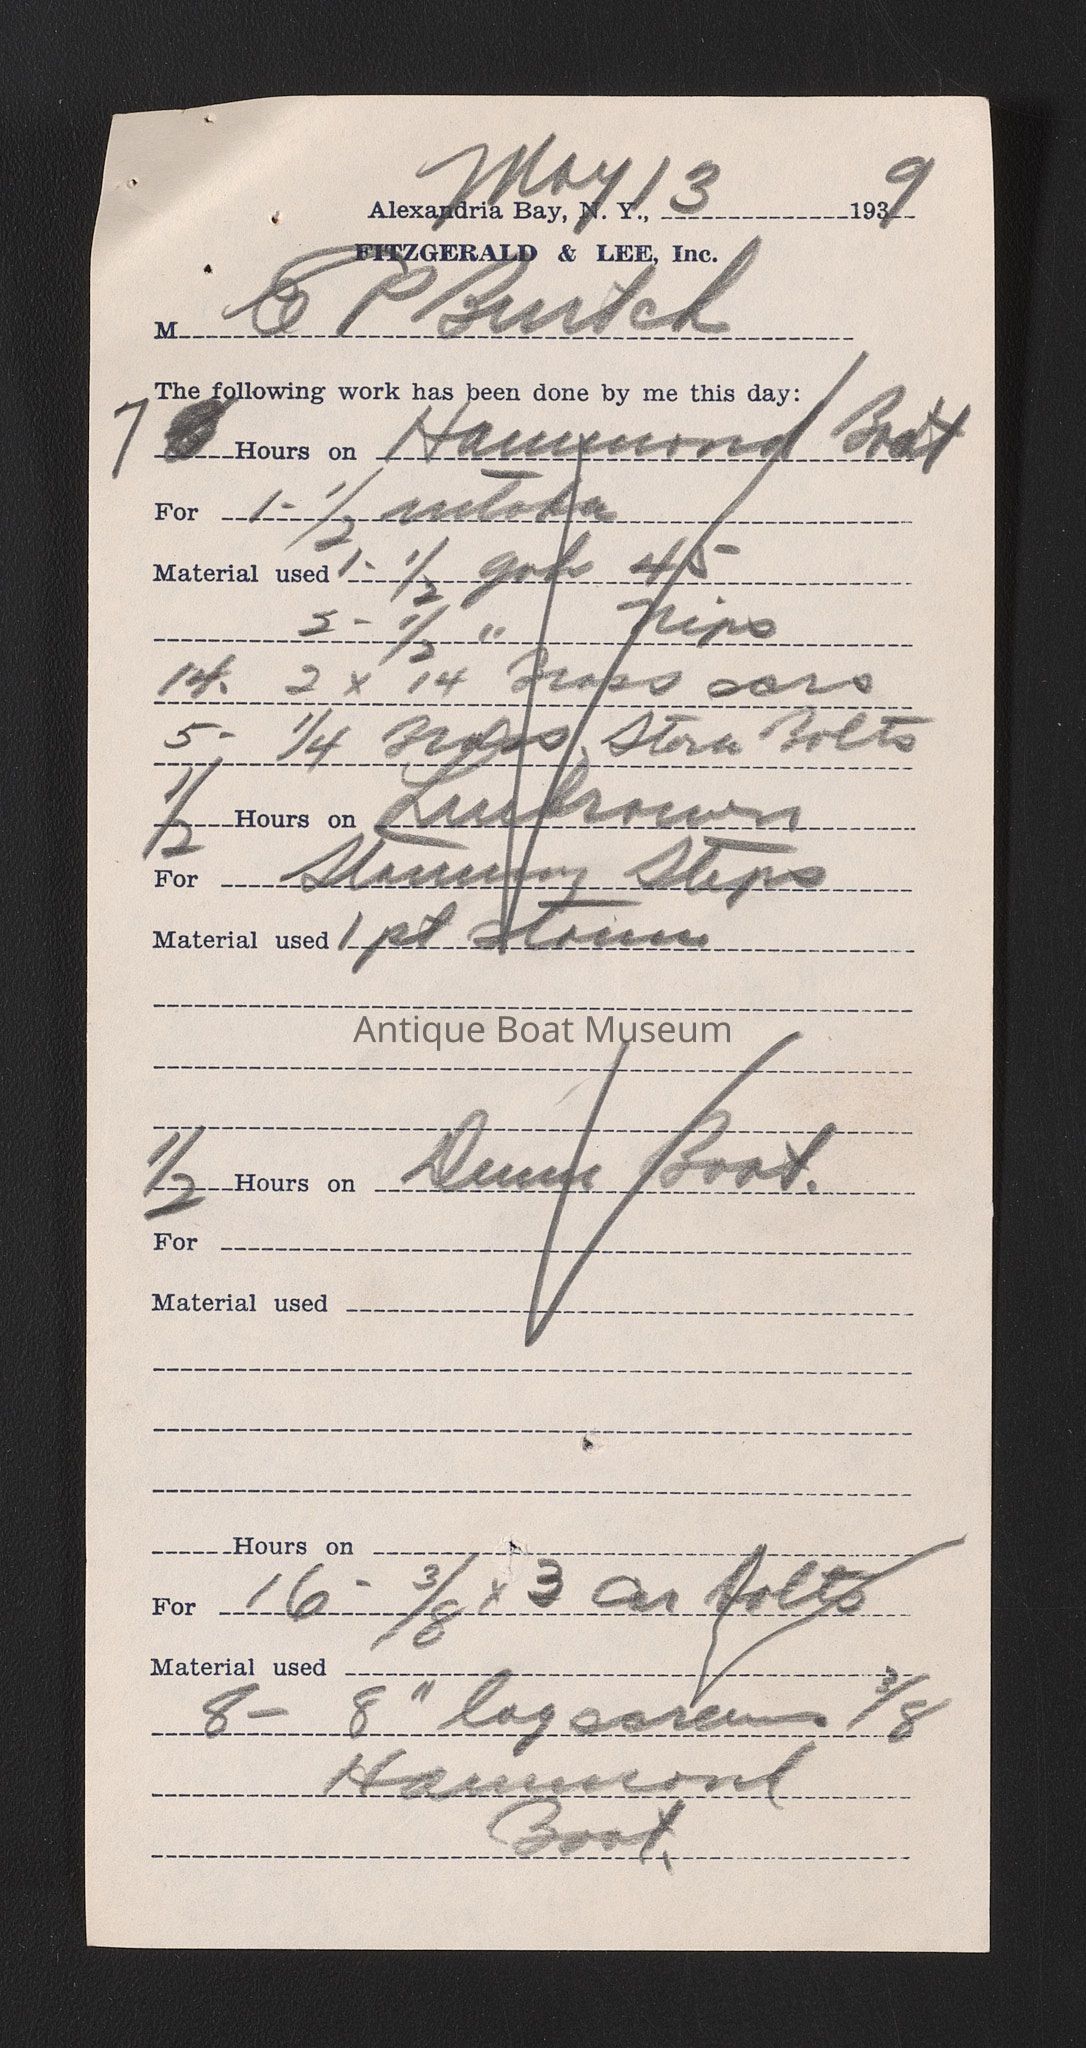 May 13 9
Alexandria Bay, N. Y., 193
FITZGERALD & LEE, Inc.
M E P Burtch
The following work has been done by me this day:
7 Hours on Hammond Boat
For 1- 1/2
Material used 1- 1/2 galv 45
5- 1/2 " Nips
14. 2 x 14 Brass scrs
5- 1/4 Brass Stove Bolts
1/2 Hours on
For Staining Steps
Material used 1 pt stain
Antique Boat Museum
1/2 Hours on Dunn Boat.
For
Material used
Hours on
For 16- 3/8 x 3 Car Bolts
Material used
8- 8" lag screws 3/8
Hammond
Boat.